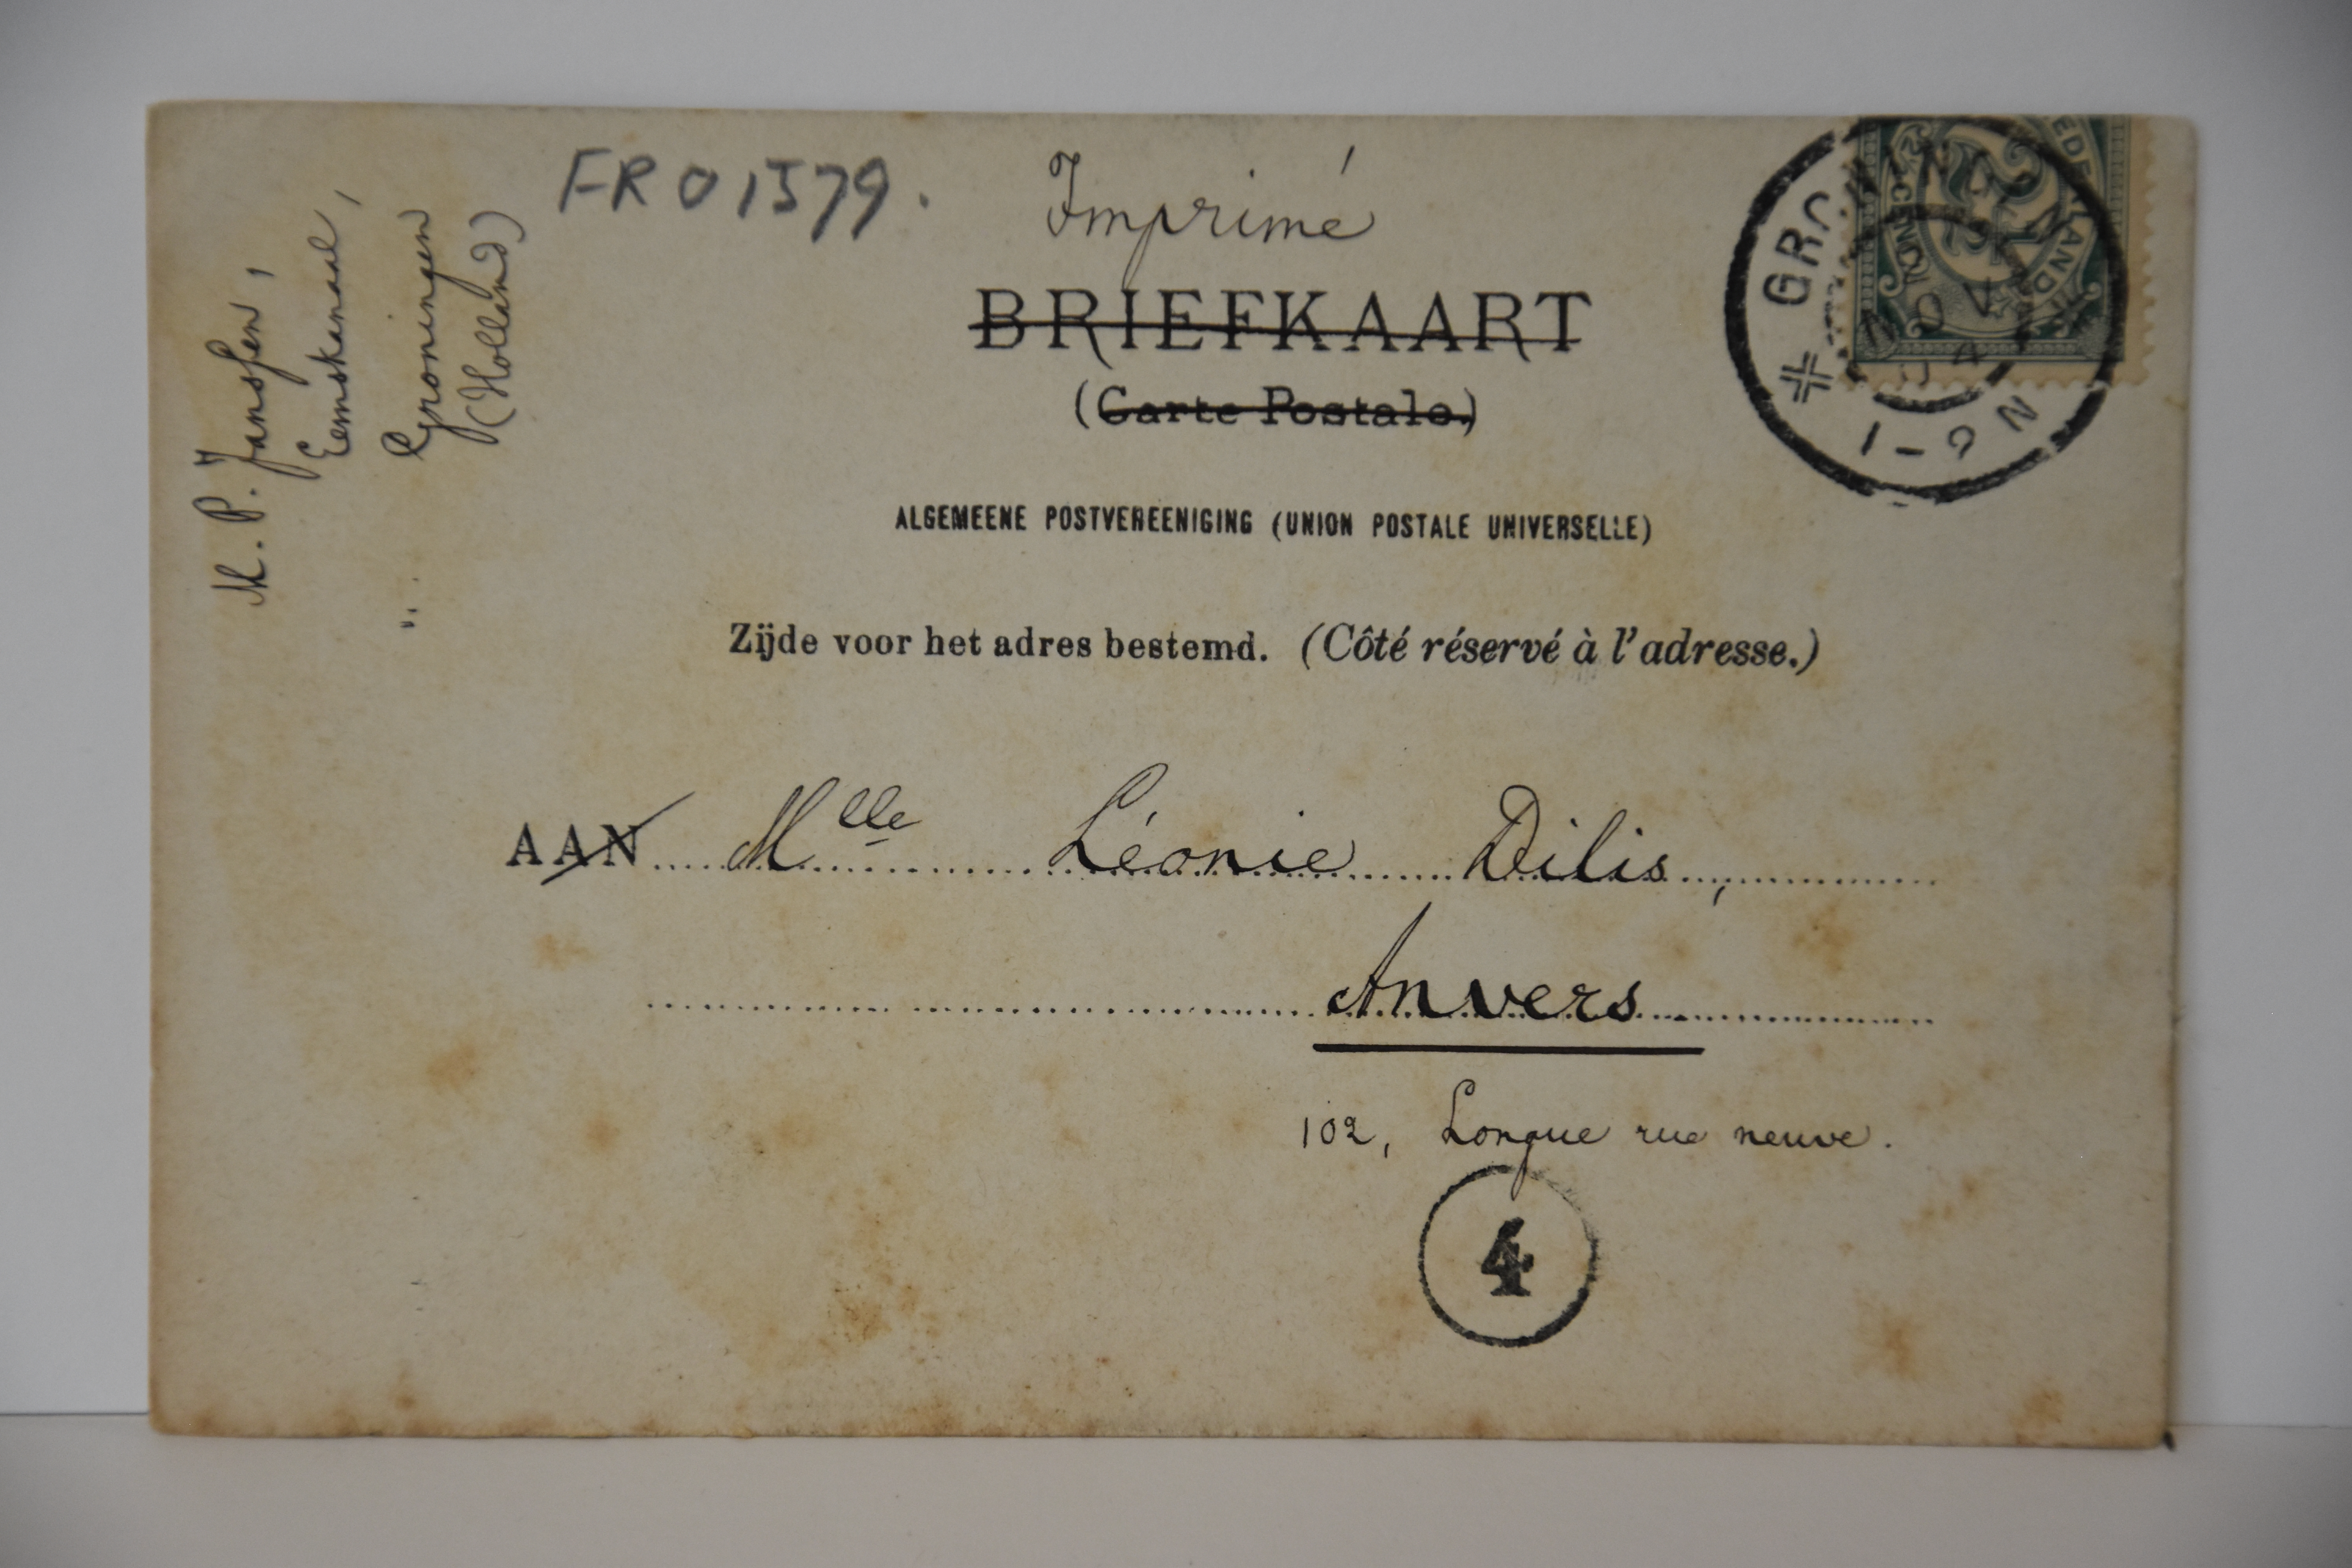 M. P. Jansſen,
Eemskanaal,
Groningen
(Holland)
FR 01579.
Imprimé
BRIEFKAART
(Carte Postale.)
ALGEMEENE POSTVEREENIGING (UNION POSTALE UNIVERSELLE)
Zijde voor het adres bestemd. (Côté réservé à l'adresse.)
AAN Mlle Léonie Dilis,
Anvers
102, Longue rue neuve.
4